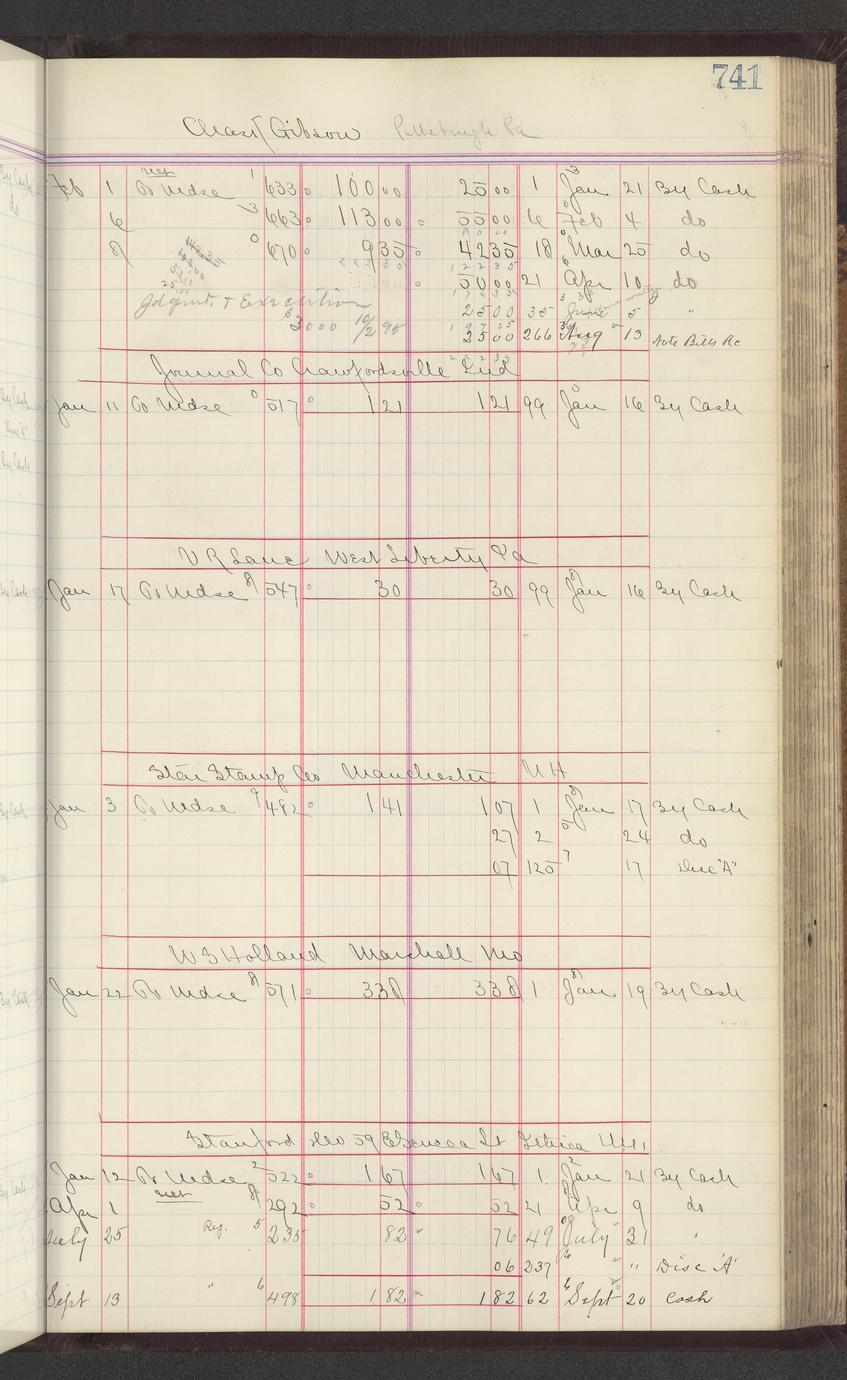 741
Chas T Gibson Pittsburgh Pa
net
Feb 1 To Mdse 1 633 100 00 25 00 1 3 Jan 21 By Cash
6 3 663 113 00 55 00 6 0 Feb 4 do
8 0 670 9 35 42 35 18 0 Mar 25 do
50 00 21 6 Apr 10 do
Jdgmt. & Execution 25 00 35 3 June 5 "
3000 10/2 95 25 00 266 Aug 13 Note Bills Re
Journal Co Crawfordsville Ind
Jan 11 To Mdse 0 517 1 21 1 21 99 0 Jan 16 By Cash
V R Lane West Liberty Pa
Jan 17 To Mdse 8 547 30 30 99 8 Jan 16 By Cash
Star Stamp Co Manchester N H
Jan 3 To Mdse 9 482 1 41 1 07 1 8 Jan 17 By Cash
27 2 5 24 do
07 125 7 17 Disc "A"
W B Holland Marshall Mo
Jan 22 To Mdse 8 571 3 38 3 38 1 8 Jan 19 By Cash
Stanford 59 E Seneca St Ithica N.Y.
Jan 12 To Mdse 2 522 1 67 1 67 1 2 Jan 21 By Cash
Apr 1 net 8 292 52 52 21 8 Apr 9 do
July 25 Reg. 5 235 82 76 49 0 July 31 "
06 237 6 " " Disc 'A'
Sept 13 " 6 498 1 82 1 82 62 6 Sept 20 Cash